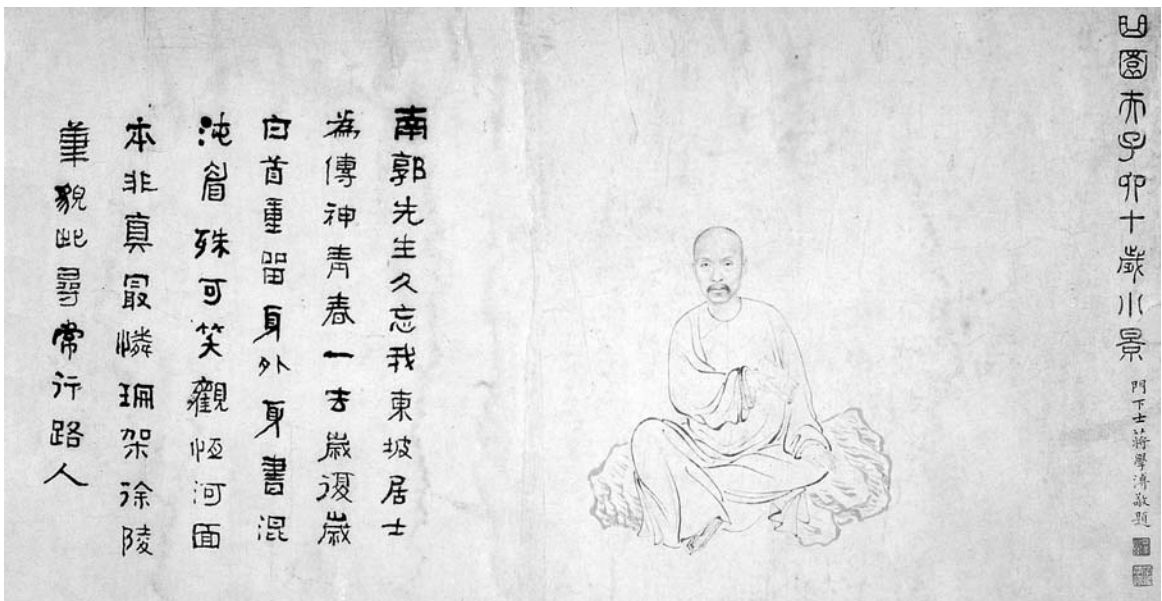 凹園夫子卯十歲小景
門下士蔣學溥敬題
南郭先生久忘我東坡居士
為傳神青春一去歲復歲
白首重留身外身書混
沌眉殊可笑觀恒河面
本非真最憐珊架徐陵
筆貌此尋常行路人